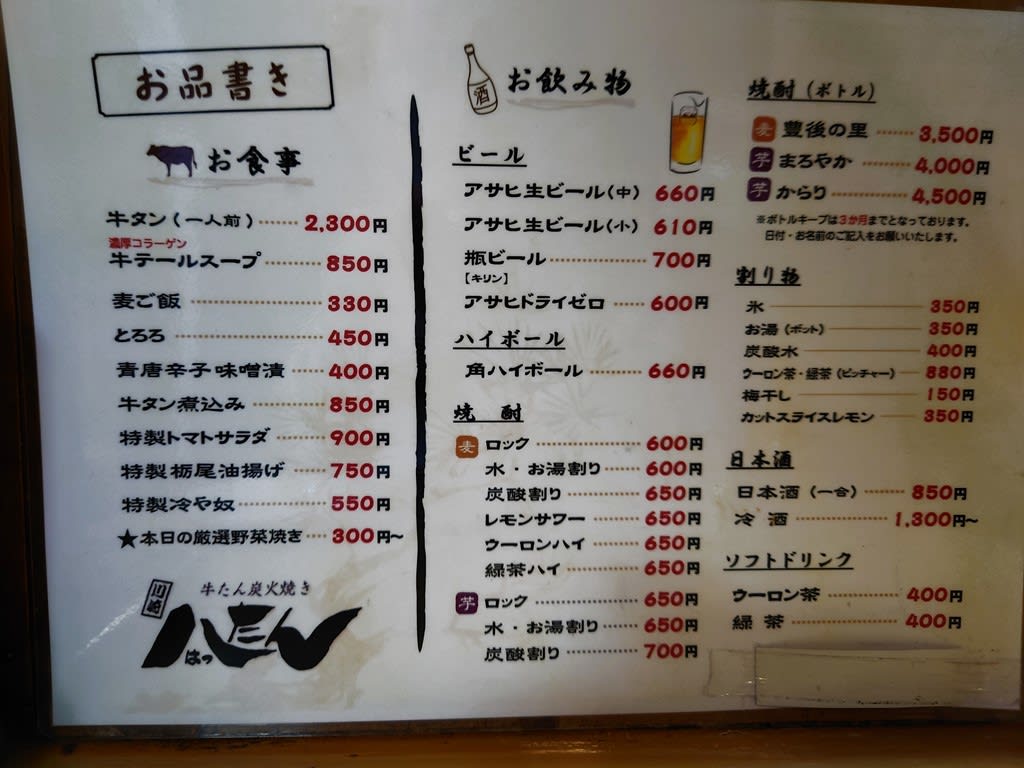 お品書き
お食事
牛タン（一人前）……2,300円
濃厚コラーゲン
牛テールスープ……850円
麦ご飯……330円
とろろ……450円
青唐辛子味噌漬……400円
牛タン煮込み……850円
特製トマトサラダ……900円
特製栃尾油揚げ……750円
特製冷や奴……550円
★本日の厳選野菜焼き……300円～
牛たん炭火焼き
川越
八たん
はっ
酒
お飲み物
ビール
アサヒ生ビール（中） 660円
アサヒ生ビール（小） 610円
瓶ビール……700円
【キリン】
アサヒドライゼロ……600円
ハイボール
角ハイボール……660円
焼酎
麦 ロック……600円
水・お湯割り……600円
炭酸割り……650円
レモンサワー……650円
ウーロンハイ……650円
緑茶ハイ……650円
芋 ロック……650円
水・お湯割り……650円
炭酸割り……700円
焼酎（ボトル）
麦 豊後の里……3,500円
芋 まろやか……4,000円
芋 からり……4,500円
※ボトルキープは3か月までとなっております。
日付・お名前のご記入をお願いいたします。
割り物
氷……350円
お湯（ポット）……350円
炭酸水……400円
ウーロン茶・緑茶（ピッチャー）……880円
梅干し……150円
カットスライスレモン……350円
日本酒
日本酒（一合）……850円
冷酒……1,300円～
ソフトドリンク
ウーロン茶……400円
緑茶……400円